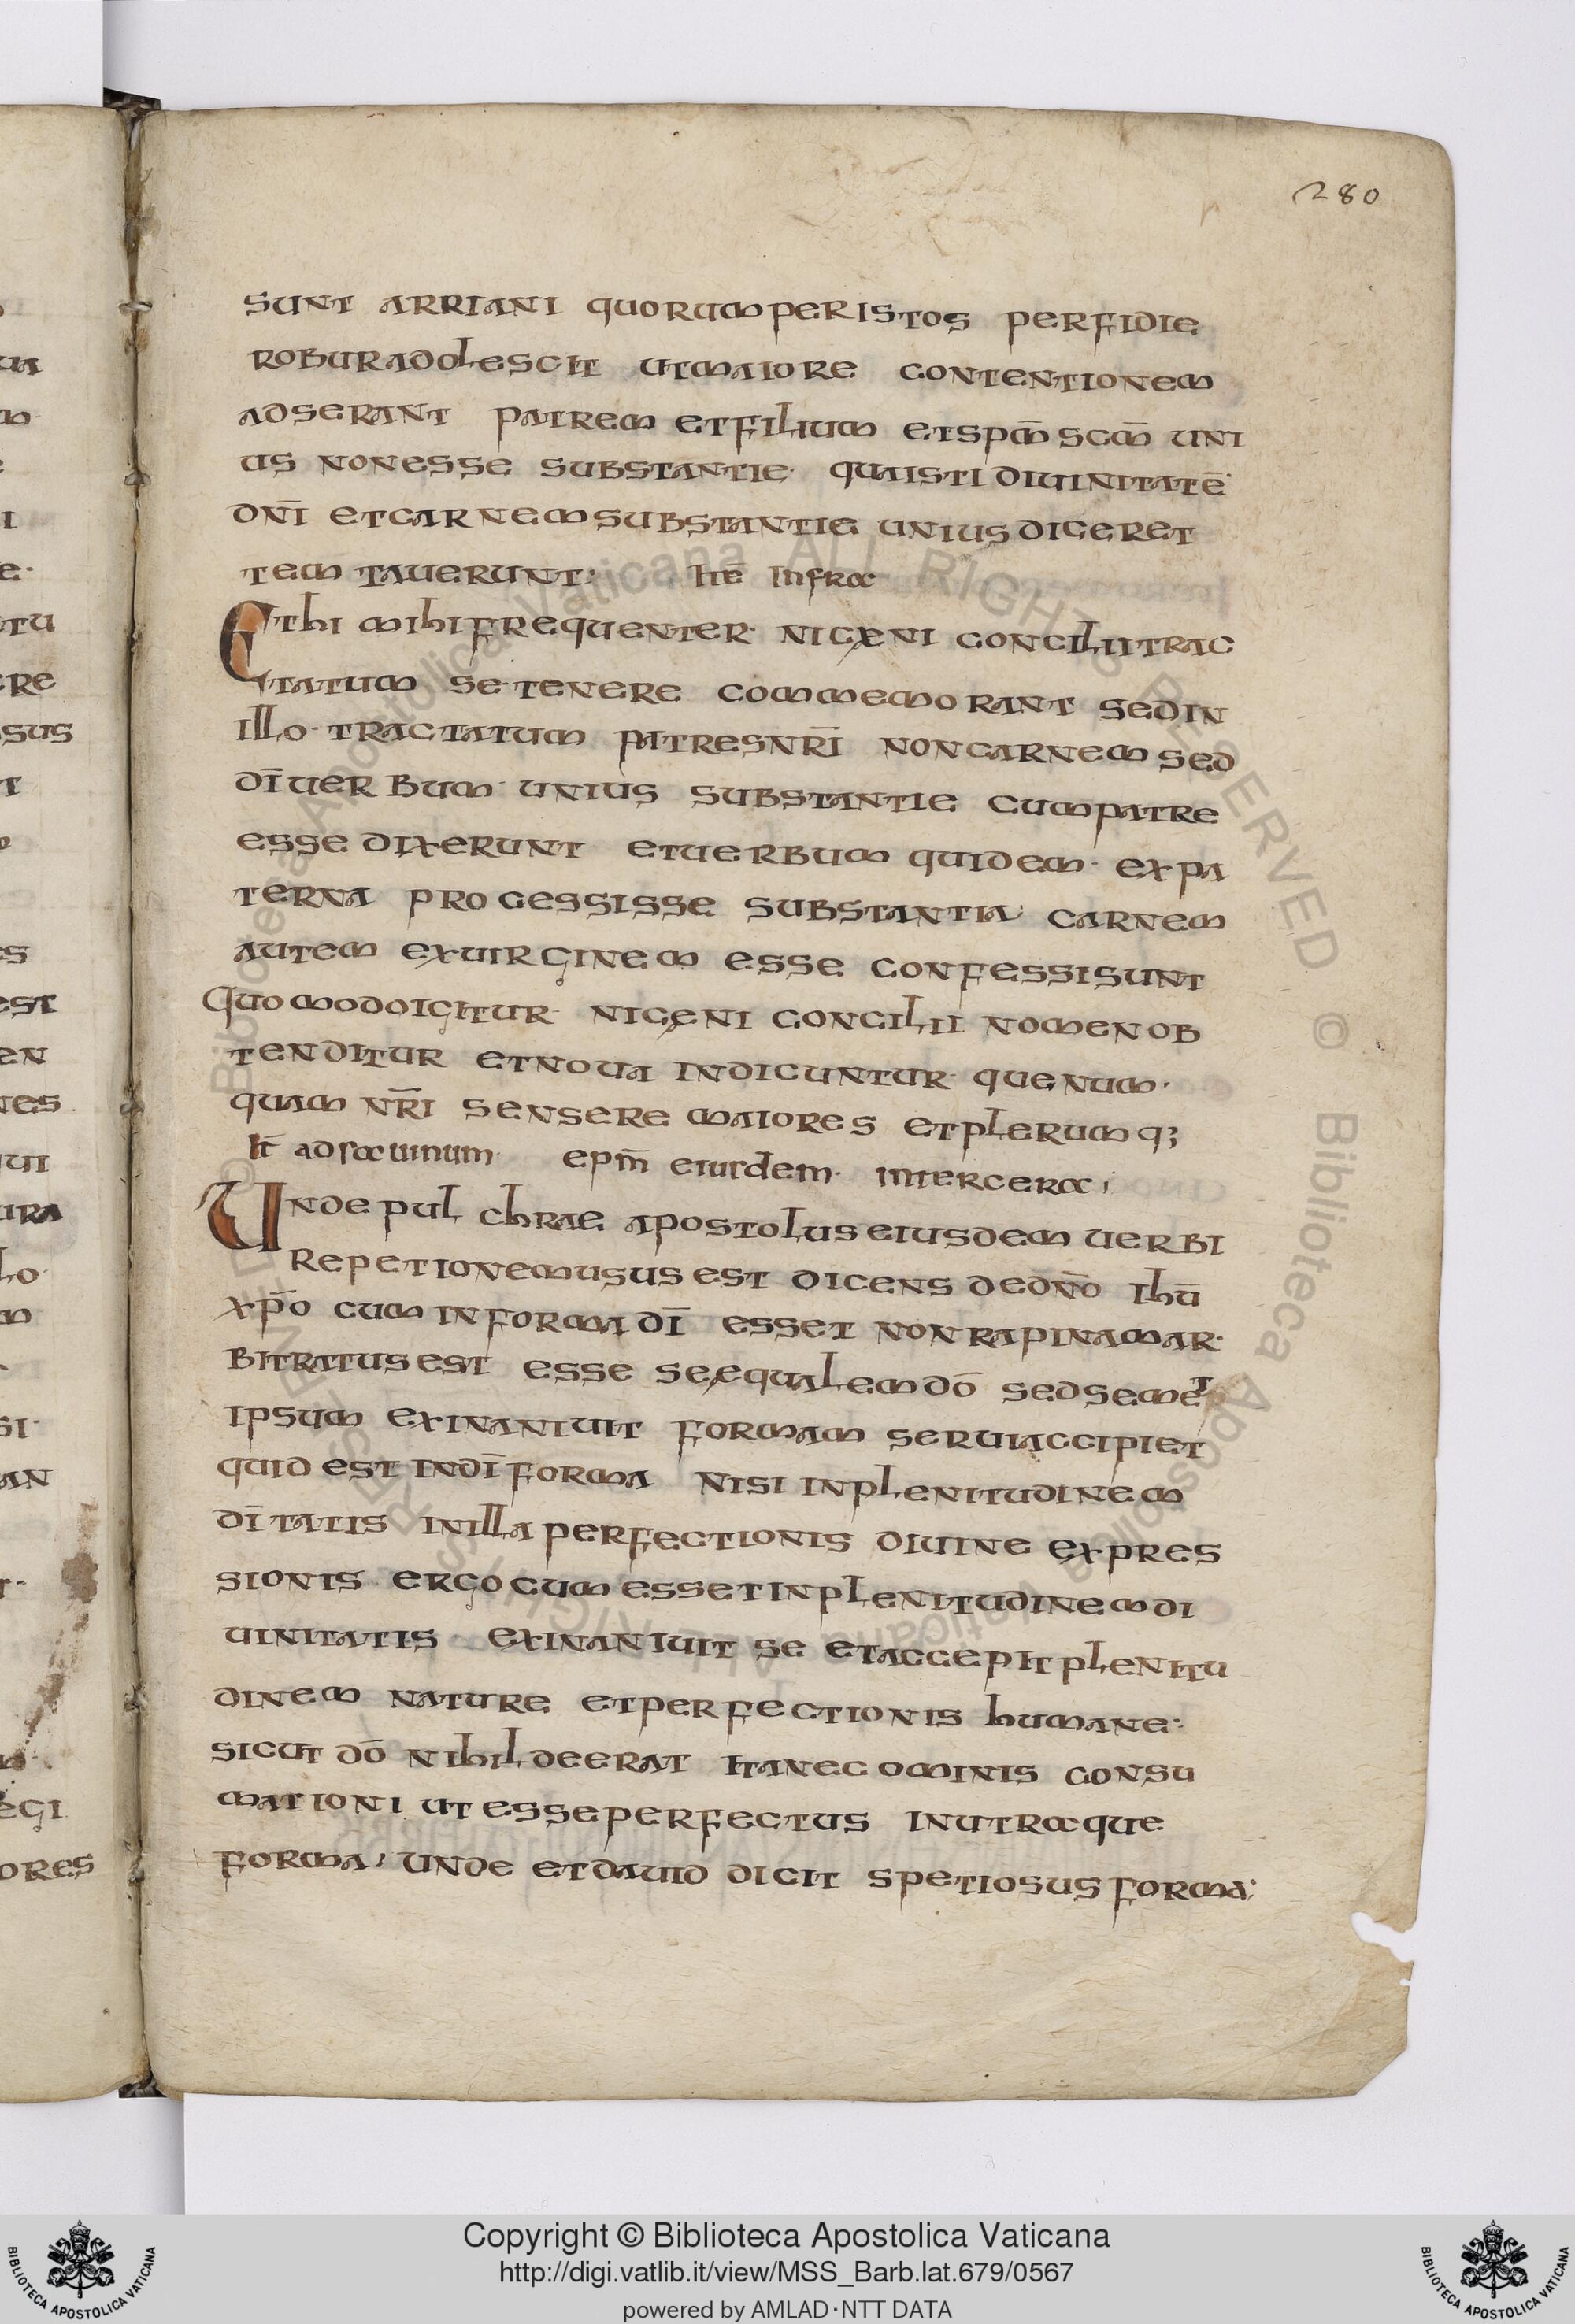 280
sunt arriani quorum per istos perfidie
robur adolescit ut maiore contentionem
adserant patrem et filium et spm̄ scm̄ uni
us non esse substantie· qua isti diuinitatē
dnī et carnem substantie unius diceret
tem tauerunt: itē infra
Et hi mihi frequenter· nicęni concilii trac
tatum se tenere commemorant sed in
illo· tractatum patres nrī non carnem sed
dī uerbum· unius substantie cum patre
esse dixerunt et uerbum quidem· ex pa
terna processisse substantia· carnem
autem ex uirginem esse confessi sunt
Quomodo igitur· nicęni concilii nomen ob
tenditur et noua indicuntur· que num·
quam nrī sensere maiores et plerumq;
It̄ ad sauinum epm̄ eiusdem· inter cera;
Unde pul chrae apostolus eiusdem uerbi
repetionem usus est dicens de dnō ihū
xpō cum in forma dī esset non rapinam ar·
bitratus est esse se equalem dō sed semet
ipsum exinaniuit formam serui accipiet
quid est in dī forma nisi in plenitudinem
dī tatis in illa perfectionis diuine expres
sionis ergo cum esset in plenitudinem di
uinitatis exinaniuit se et accepit plenitu
dinem nature et perfectionis humane·
sicut dō nihil deerat ita nec ominis consu
mationi ut esse perfectus in utraque
forma; unde et dauid dicit spetiosus forma:
ua
m
e
i
e·
tu
ere
sus
t
es
est
en
nes
ui
ura
lo·
m
si·
an
t·
m·
egi
ores
Copyright © Biblioteca Apostolica Vaticana
http://digi.vatlib.it/view/MSS_Barb.lat.679/0567
powered by AMLAD·NTT DATA
BIBLIOTECA APOSTOLICA VATICANA
BIBLIOTECA APOSTOLICA VATICANA